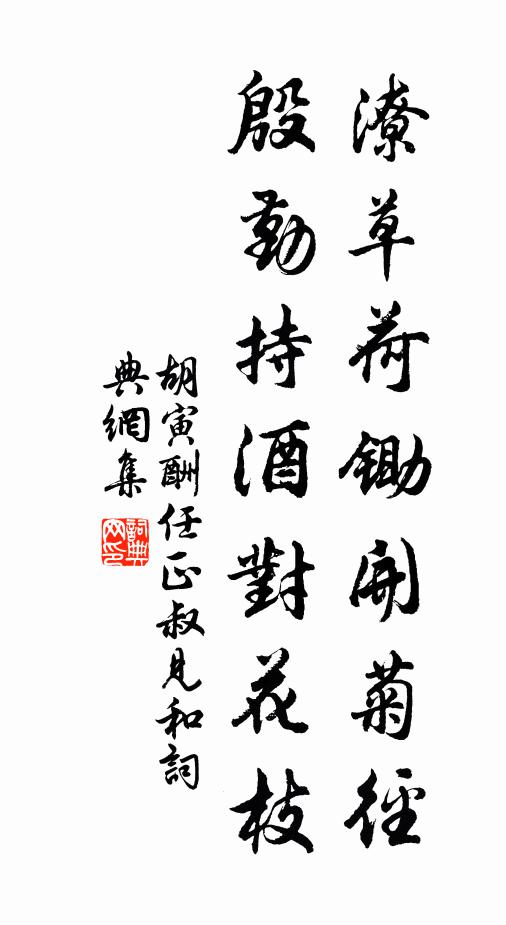 潦草荷鋤開菊徑
殷勤持酒對花枝
胡寅酬任正叔見和詞
典網集
詞典网印